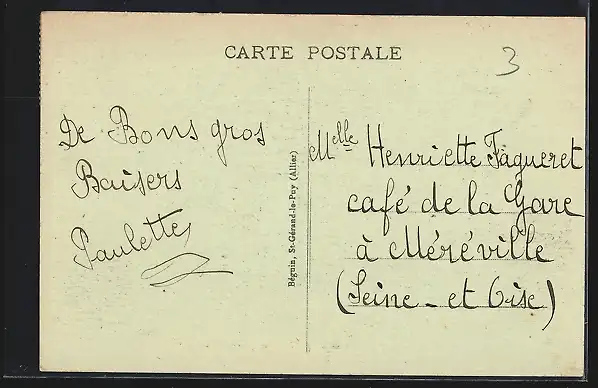 CARTE POSTALE
3
De Bons gros
Baisers
Paulette
Béguin, St-Gérand-le-Puy (Allier)
Melle Henriette Fagueret
café de la Gare
à Méréville
(Seine - et Oise)